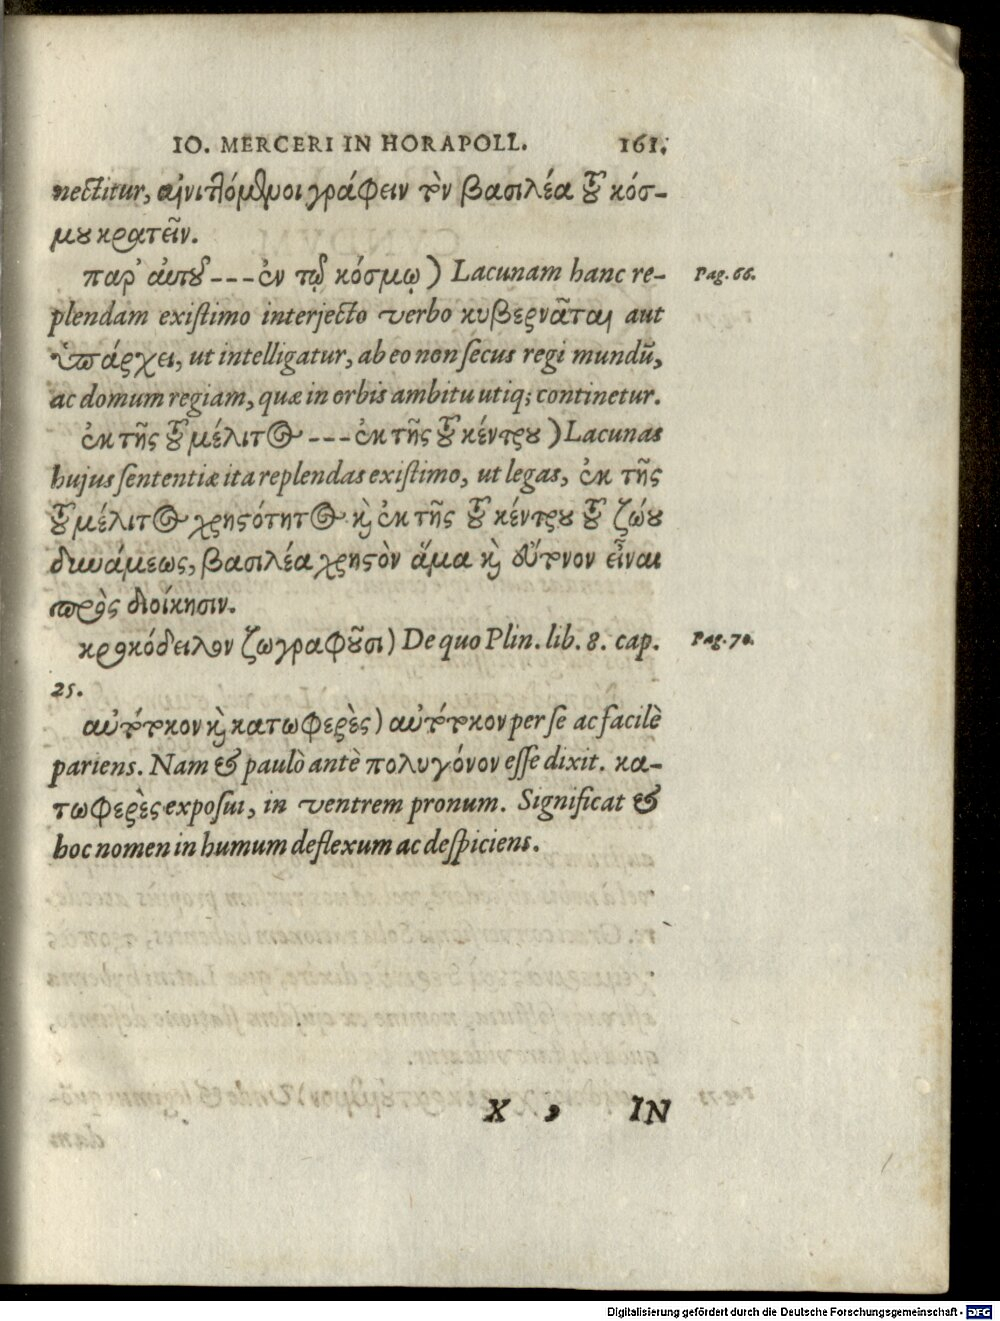 IO. MERCERI IN HORAPOLL. 161.
nectitur, αἰνιττόμενοι γράφειν τὸν βασιλέα τοῦ κόσ-
μου κρατεῖν.
παρ' αὐτοῦ --- ἐν τῷ κόσμῳ) Lacunam hanc re-
Pag. 66.
plendam existimo interjecto verbo κυβερνᾶται aut
ὑπάρχει, ut intelligatur, ab eo non secus regi mundū,
ac domum regiam, quæ in orbis ambitu utiq; continetur.
ἐκ τῆς τοῦ μέλιτος --- ἐκ τῆς τοῦ κέντρου) Lacunas
hujus sententiæ ita replendas existimo, ut legas, ἐκ τῆς
τοῦ μέλιτος χρηστότητος καὶ ἐκ τῆς τοῦ κέντρου τοῦ ζώου
δυνάμεως, βασιλέα χρηστὸν ἅμα καὶ εὔτονον εἶναι
πρὸς διοίκησιν.
κροκόδειλον ζωγραφοῦσι) De quo Plin. lib. 8. cap.
Pag. 70.
25.
καὶ κατωφερὲς) per se ac facilè
pariens. Nam & paulò antè πολυγόνον esse dixit. κα-
τωφερὲς exposui, in ventrem pronum. Significat &
hoc nomen in humum deflexum ac despiciens.
X , IN
Digitalisierung gefördert durch die Deutsche Forschungsgemeinschaft - DFG